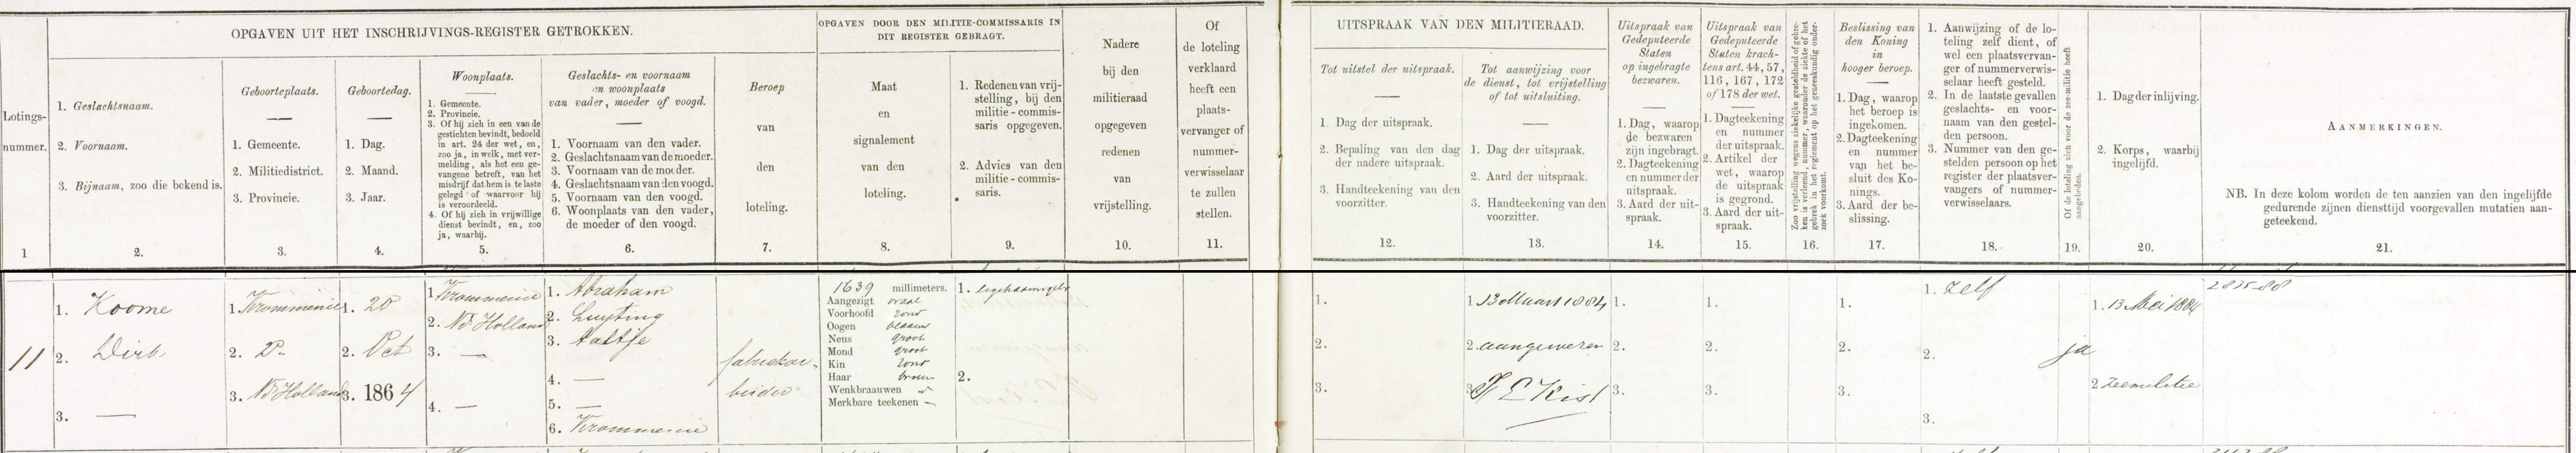 OPGAVEN UIT HET INSCHRIJVINGS-REGISTER GETROKKEN.
OPGAVEN DOOR DEN MILITIE-COMMISSARIS IN
DIT REGISTER GEBRAGT.
Lotings-
nummer.
1
1. Geslachtsnaam.
2. Voornaam.
3. Bijnaam, zoo die bekend is.
2.
Geboorteplaats.
1. Gemeente.
2. Militiedistrict.
3. Provincie.
3.
Geboortedag.
1. Dag.
2. Maand.
3. Jaar.
4.
Woonplaats.
1. Gemeente.
2. Provincie.
3. Of hij zich in een van de
gestichten bevindt, bedoeld
in art. 24 der wet, en,
zoo ja, in welk, met ver-
melding, als het een ge-
vangene betreft, van het
misdrijf dat hem is te laste
gelegd of waarvoor hij
is veroordeeld.
4. Of hij zich in vrijwillige
dienst bevindt, en, zoo
ja, waarbij.
5.
Geslachts- en voornaam
en woonplaats
van vader, moeder of voogd.
1. Voornaam van den vader.
2. Geslachtsnaam van de moeder.
3. Voornaam van de moeder.
4. Geslachtsnaam van den voogd.
5. Voornaam van den voogd.
6. Woonplaats van den vader,
de moeder of den voogd.
6.
Beroep
van
den
loteling.
7.
Maat
en
signalement
van den
loteling.
8.
1. Redenen van vrij-
stelling, bij den
militie-commis-
saris opgegeven.
2. Advies van den
militie-commis-
saris.
9.
Nadere
bij den
militieraad
opgegeven
redenen
van
vrijstelling.
10.
Of
de loteling
verklaard
heeft een
plaats-
vervanger of
nummer-
verwisselaar
te zullen
stellen.
11.
UITSPRAAK VAN DEN MILITIERAAD.
Tot uitstel der uitspraak.
1. Dag der uitspraak.
2. Bepaling van den dag
der nadere uitspraak.
3. Handteekening van den
voorzitter.
12.
Tot aanwijzing voor
de dienst, tot vrijstelling
of tot uitsluiting.
1. Dag der uitspraak.
2. Aard der uitspraak.
3. Handteekening van den
voorzitter.
13.
Uitspraak van
Gedeputeerde
Staten
op ingebragte
bezwaren.
1. Dag, waarop
de bezwaren
zijn ingebragt.
2. Dagteekening
en nummer der
uitspraak.
3. Aard der uit-
spraak.
14.
Uitspraak van
Gedeputeerde
Staten krach-
tens art. 44, 57,
116, 167, 172
of 178 der wet.
1. Dagteekening
en nummer
der uitspraak.
2. Artikel der
wet, waarop
de uitspraak
is gegrond.
3. Aard der uit-
spraak.
15.
Zoo vrijstelling wegens ziekelijke gesteldheid of gebre-
ken is verleend, nummer, waaronder de ziekte of het
gebrek in het reglement op het geneeskundig onder-
zoek voorkomt.
16.
Beslissing van
den Koning
in
hooger beroep.
1. Dag, waarop
het beroep is
ingekomen.
2. Dagteekening
en nummer
van het be-
sluit des Ko-
nings.
3. Aard der be-
slissing.
17.
1. Aanwijzing of de lo-
teling zelf dient, of
wel een plaatsvervan-
ger of nummerverwis-
selaar heeft gesteld.
2. In de laatste gevallen
geslachts- en voor-
naam van den gestel-
den persoon.
3. Nummer van den ge-
stelden persoon op het
register der plaatsver-
vangers of nummer-
verwisselaars.
18.
Of de loteling zich voor de zee-militie heeft
aangeboden.
19.
1. Dag der inlijving.
2. Korps, waarbij
ingelijfd.
20.
AANMERKINGEN.
NB. In deze kolom worden de ten aanzien van den ingelijfde
gedurende zijnen diensttijd voorgevallen mutatien aan-
geteekend.
21.
11
1. Koome
2. Dirk
3. —
1. Krommenie
2. Do
3. Nd Holland
1. 20
2. Oct
3. 1864
1. Krommenie
2. Nd Holland
3. —
4. —
1. Abraham
2. Luyting
3. Aaltje
4. —
5. —
6. Krommenie
fabriekar-
beider
1639 millimeters.
Aangezigt ovaal
Voorhoofd rond
Oogen blaauw
Neus groot
Mond groot
Kin rond
Haar bruin
Wenkbraauwen do
Merkbare teekenen —
1. ligchaamsgebr
2.
1.
2.
3.
1. 13 Maart 1884
2. aangewezen
3. Kist
1.
2.
3.
1.
2.
3.
1.
2.
3.
1. Zelf
2.
3.
ja
1. 13 Mei 1884
2. Zeemilitie
2835-88